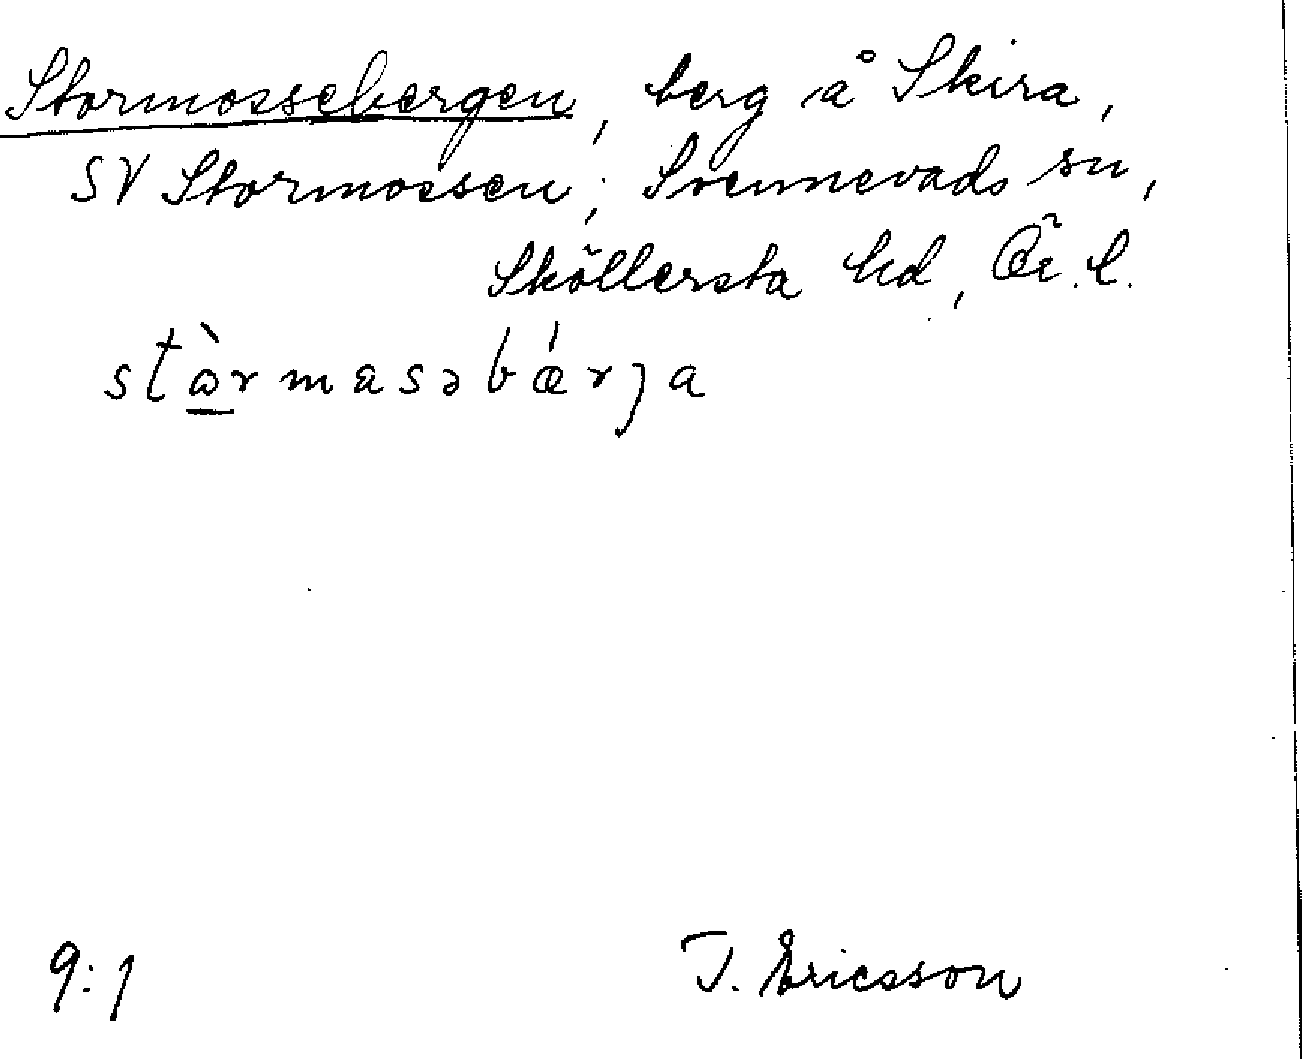 Stormossebergen, berg å Skira,
SV Stormossen; Svennevads sn,
Sköllersta hd, Ör. l.
stɷ̀rmasəbǽrja
9:1
T. Ericsson